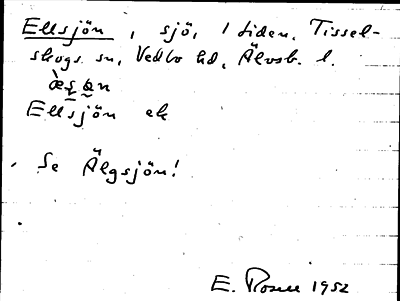 Ellsjön, sjö, i tiden, Tissel-
skogs sn, Vedbo hd, Älvsb. l.
Ellsjön ek
Se Älgsjön!
E. Rosell 1952